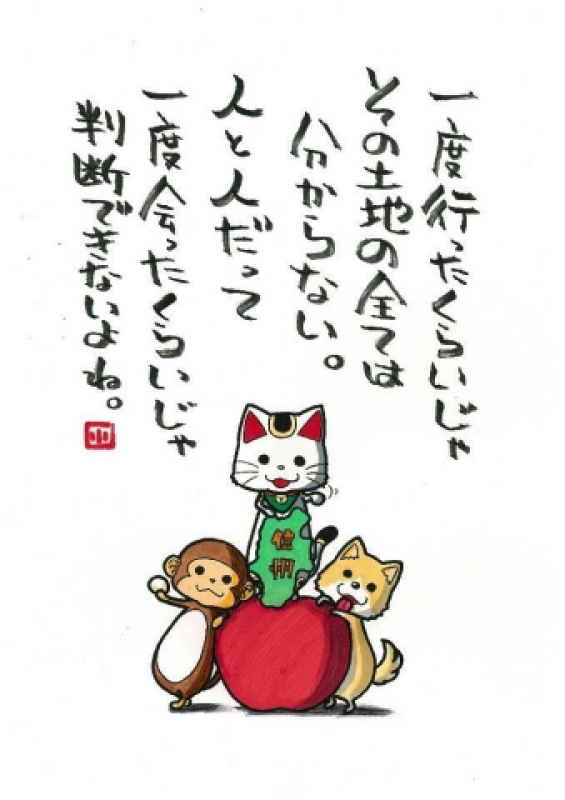 一度行ったくらいじゃ
その土地の全ては
分からない。
人と人だって
一度会ったくらいじゃ
判断できないよね。
信州